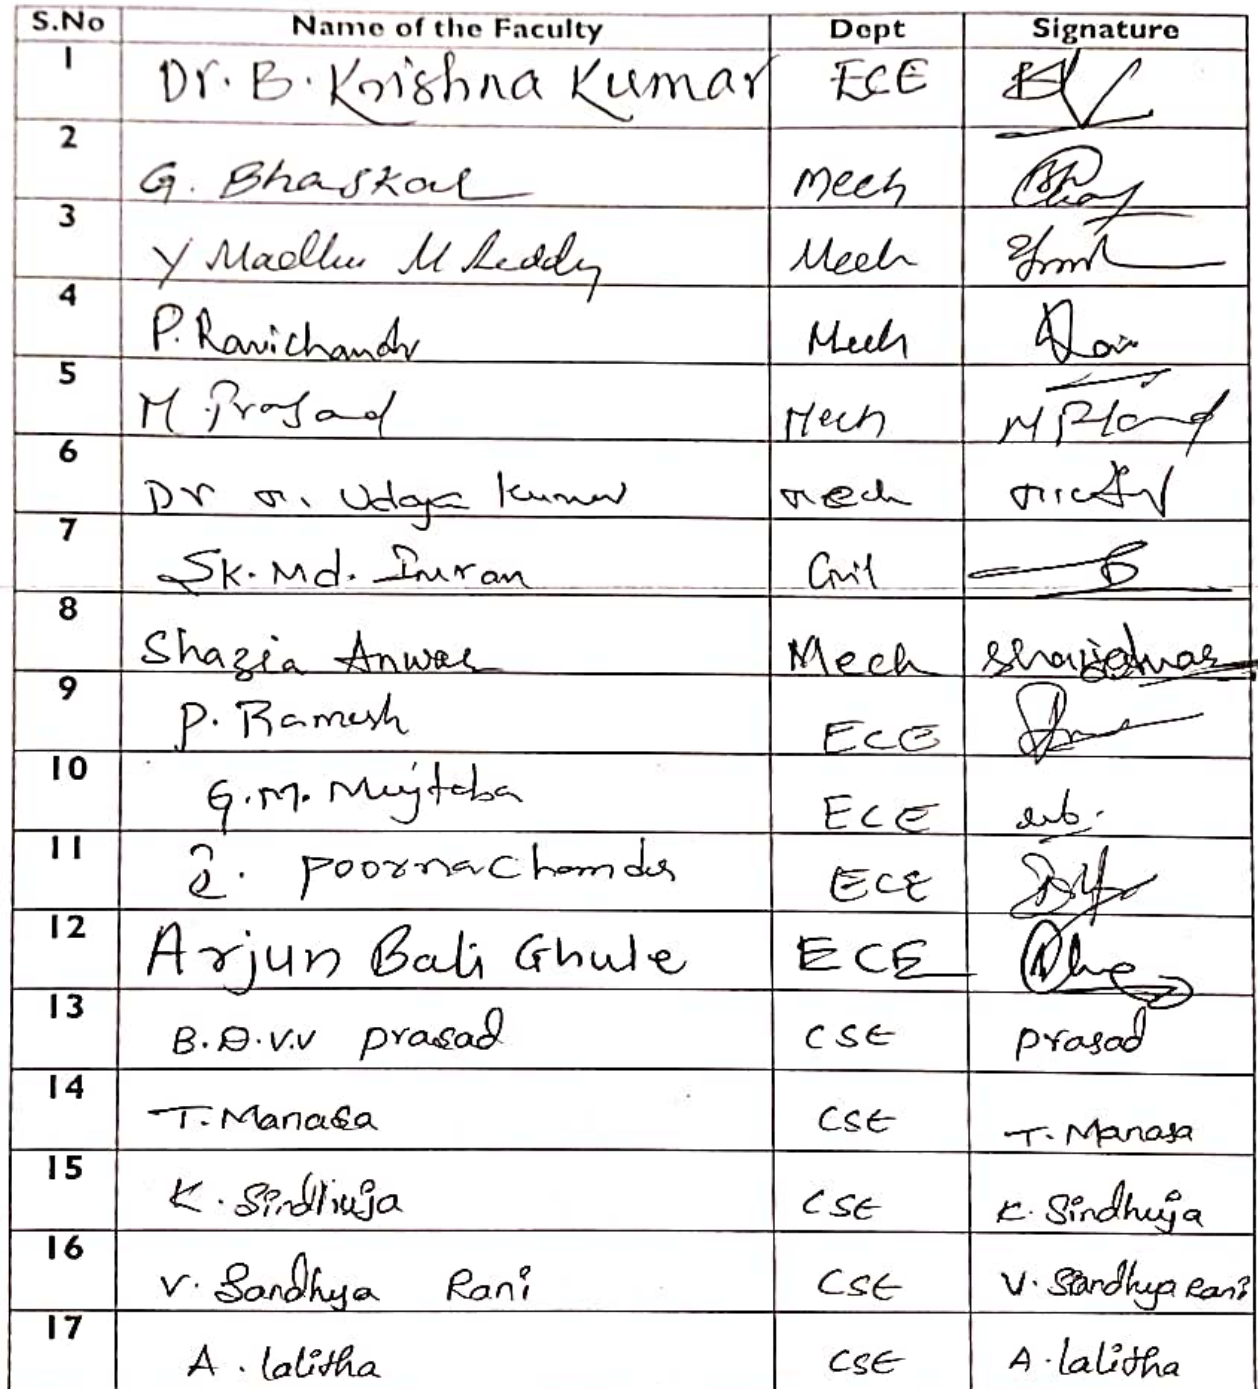 S.No Name of the Faculty Dept Signature
1 Dr. B. Krishna Kumar ECE
2 G. Bhaskar Mech
3 Y Madhu M Reddy Mech
4 P. Ravichandr Mech Ravi
5 M Prasad Mech M Prasad
6 Dr M. Udaya Kumar Mech
7 Sk. Md. Imran Civil
8 Shazia Anwar Mech
9 P. Ramesh ECE
10 G.M. Mujtaba ECE
11 Poornachander ECE
12 Arjun Bali Ghule ECE
13 B.D.V.V Prasad CSE Prasad
14 T. Manasa CSE T. Manasa
15 K. Sindhuja CSE K. Sindhuja
16 V. Sandhya Rani CSE V. Sandhya Rani
17 A. lalitha CSE A. lalitha